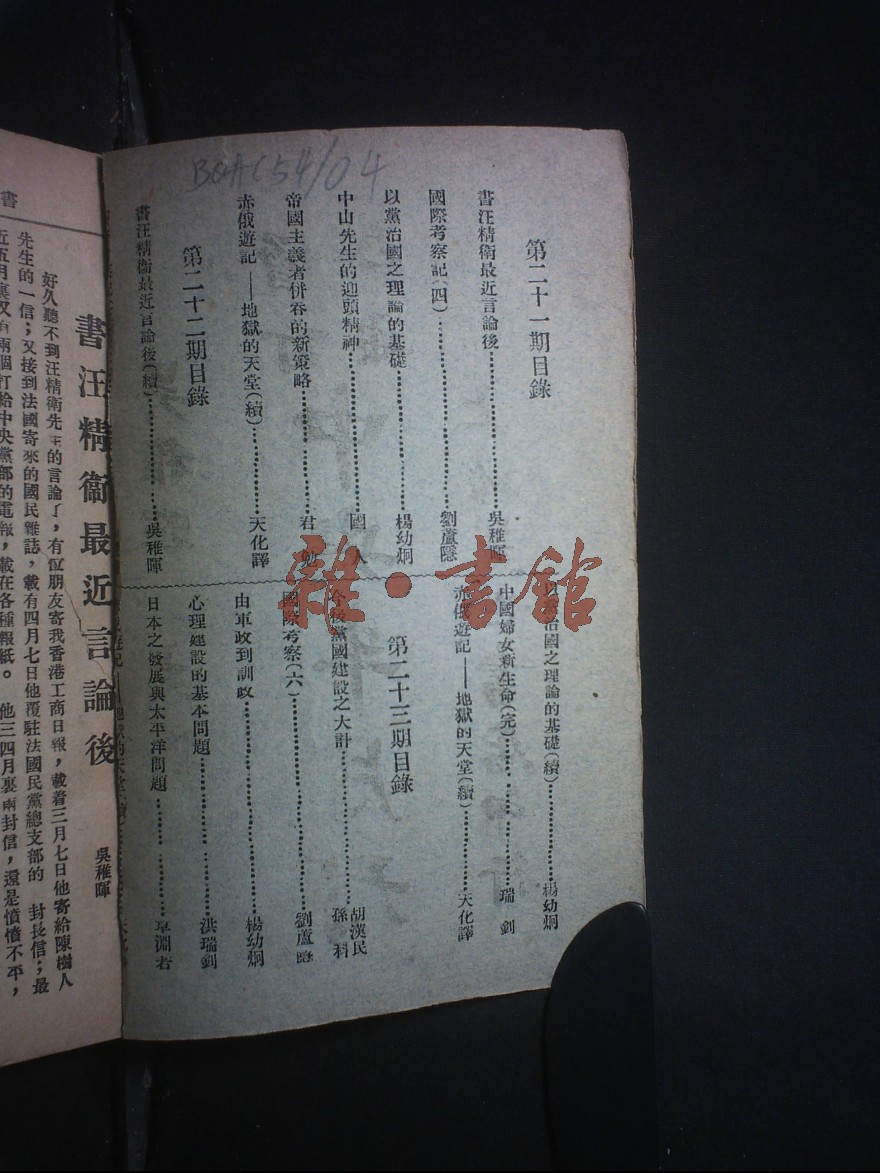 BOAC54/04
第二十一期目錄
書汪精衛最近言論後…………吳稚暉
國際考察記(四)…………劉蘆隱
以黨治國之理論的基礎…………楊幼炯
中山先生的迎頭精神…………國人
帝國主義者併吞的新策略…………君勉
赤俄遊記——地獄的天堂(續)…………天化譯
第二十二期目錄
書汪精衛最近言論後(續)…………吳稚暉
以黨治國之理論的基礎(續)…………楊幼炯
中國婦女新生命(完)…………瑞釗
赤俄遊記——地獄的天堂(續)…………天化譯
第二十三期目錄
今後黨國建設之大計…………胡漢民 孫科
國際考察(六)…………劉蘆隱
由軍政到訓政…………楊幼炯
心理建設的基本問題…………洪瑞釗
日本之發展與太平洋問題…………章淵若
雜·書館
書
書汪精衛最近言論後
吳稚暉
好久聽不到汪精衛先生的言論了,有位朋友寄我香港工商日報,載着三月七日他寄給陳樹人
先生的一信;又接到法國寄來的國民雜誌,載有四月七日他覆駐法國民黨總支部的 封長信;最
近五月裏又有兩個打給中央黨部的電報,載在各種報紙。 他三四月裏兩封信,還是憤憤不平,